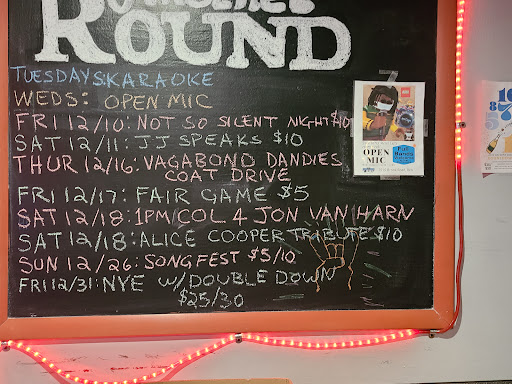 ROUND
TUESDAYS: KARAOKE
WEDS: OPEN MIC
FRI 12/10: NOT SO SILENT NIGHT $10
SAT 12/11: JJ SPEAKS $10
THUR 12/16: VAGABOND DANDIES
COAT DRIVE
FRI 12/17: FAIR GAME $5
SAT 12/18: 1PM/COL 4 JON VAN HARN
SAT 12/18: ALICE COOPER TRIBUTE $10
SUN 12/26: SONGFEST $5/10
FRI 12/31: NYE W/ DOUBLE DOWN
$25/30
OPEN
MIC